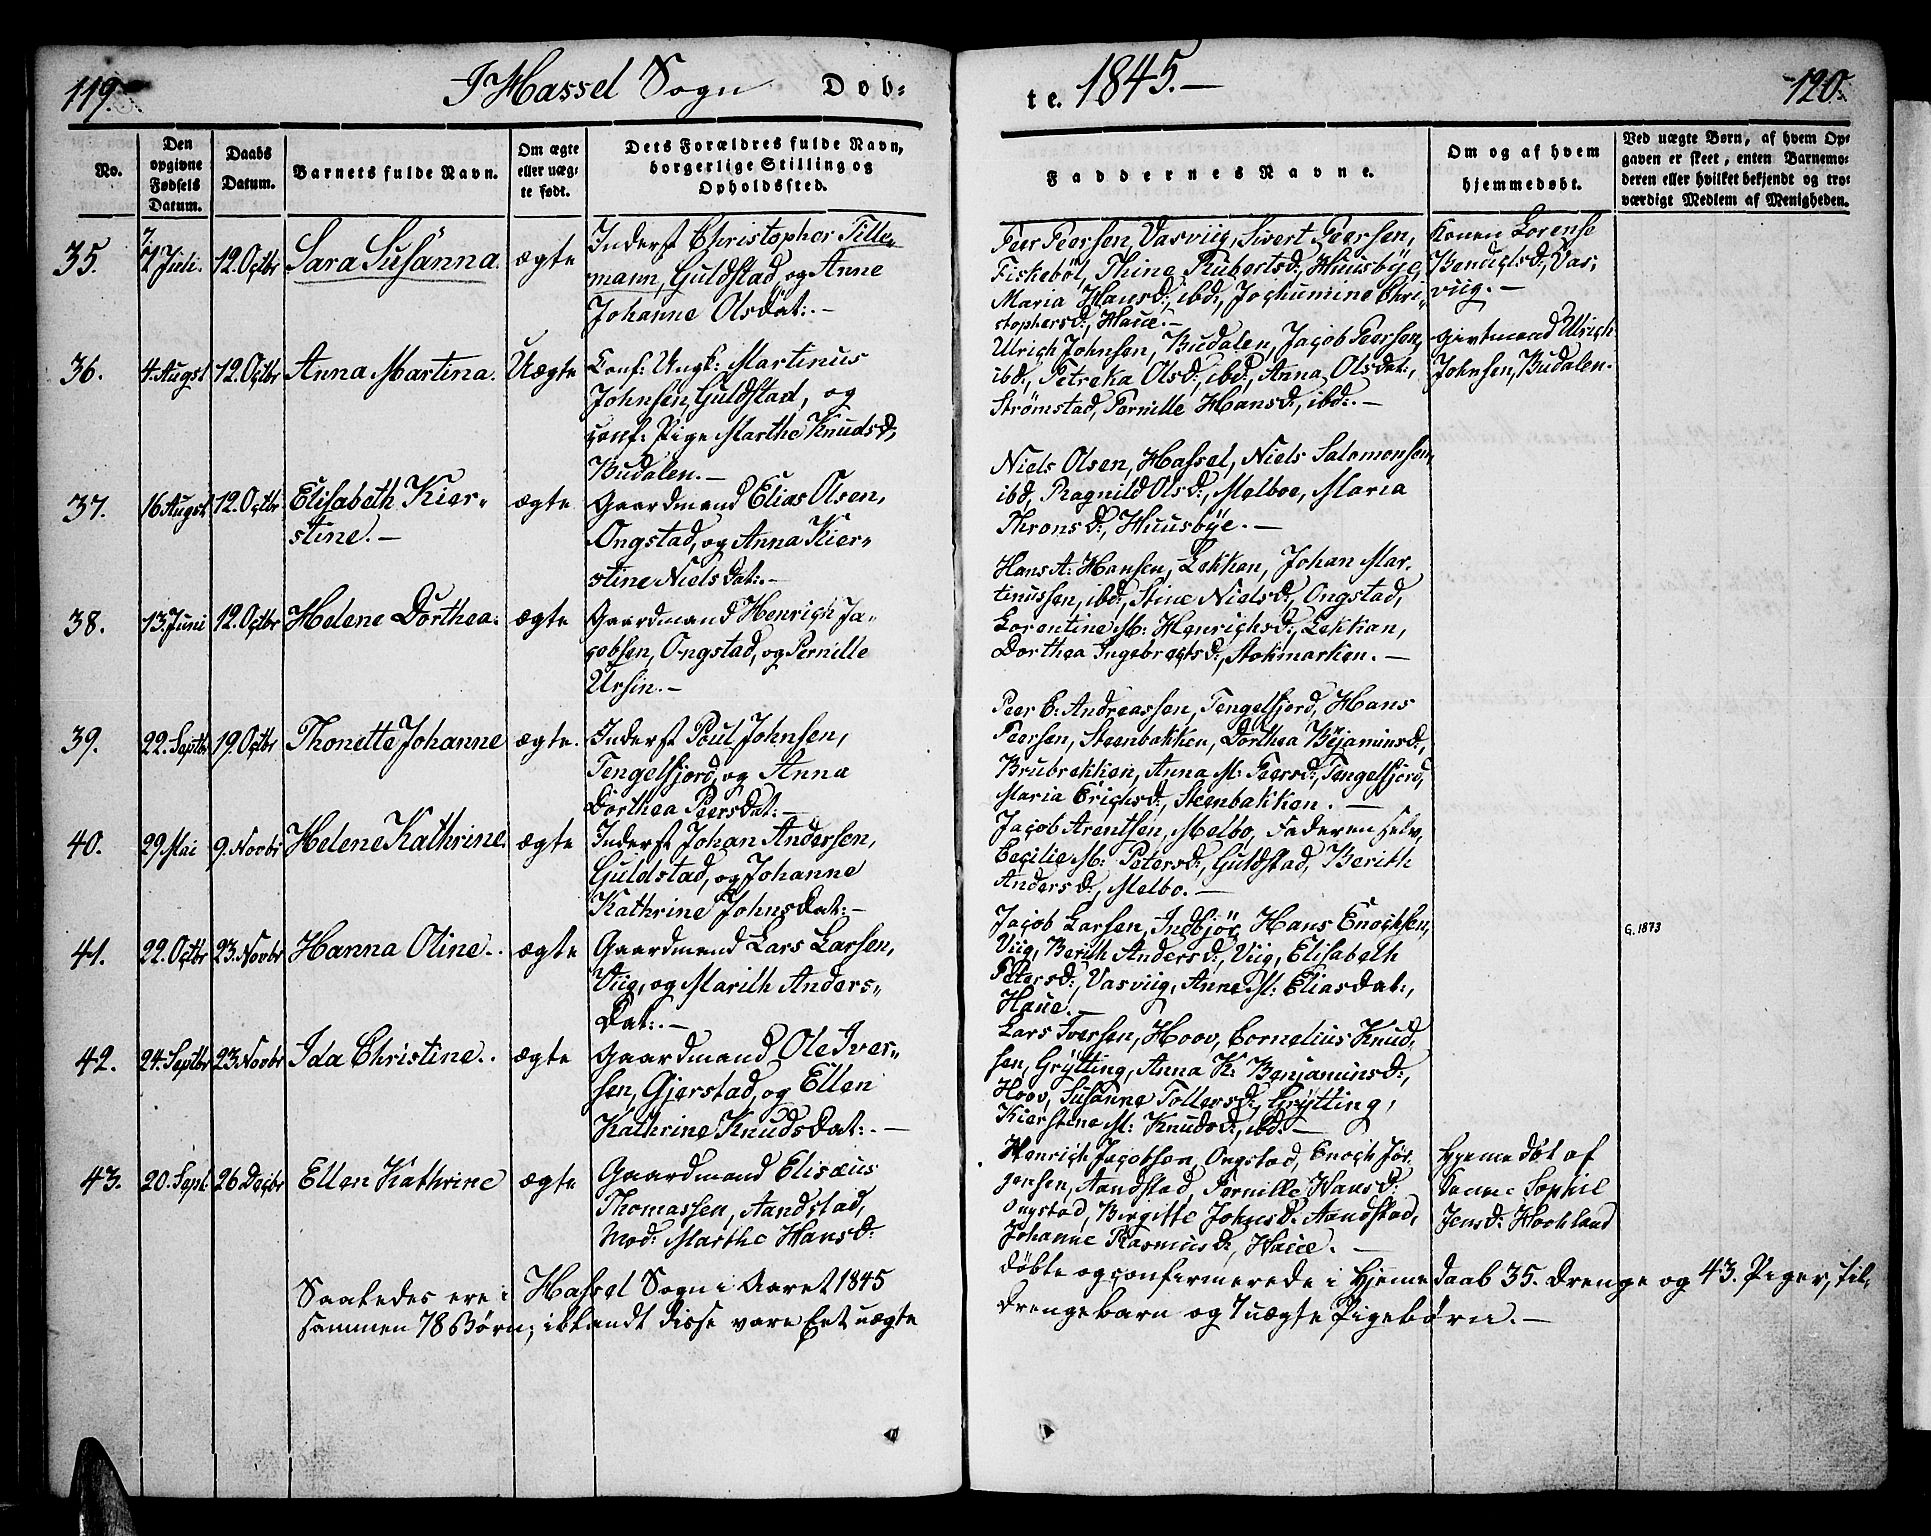 119.
I Hassel Sogn Døb-
te. 1845.—
120.
No.
Den opgivne Fødsels Datum.
Daabs Datum.
Barnets fulde Navn.
Om ægte eller uægte født.
Dets Forældres fulde Navn, borgerlige Stilling og Opholdsfted.
Faddernes Navne.
Om og af hvem hjemmedøbt.
Ved uægte Børn, af hvem Opgaven er skeet, enten Barnemoderen eller hvilket bekjendt og troværdigt Medlem af Menigheden.
35.
Juli.
12. Octbr
Sara Susanna.
ægte
Inderst Christopher Tille-
mann, Guldstad, og Anne
Johanne Olsdat:.—
Peer Peersen, Vasviig, Sivert Peersen,
Fiskebøl, Thine Rubertsd:, Huusbye,
Maria Hansd:, ibd:, Jochumine Chri-
stophersd:, Haue.—
Konen Lorense
Bendictsd:, Vas-
viig.—
36.
4. Augst
12. Octbr
Anna Martina.
Uægte
Conf: Ungk: Martinus
Johnsen, Guldstad, og
conf: Pige Marthe Knudsd:,
Budalen.—
Ulrich Johnsen, Budalen, Jacob Peersen,
ibd:, Petreka Olsd:, ibd:, Anna Olsdat:,
Strømstad, Pernille Hansd:, ibd:.—
Givtmand Ulrich
Johnsen, Budalen.
37.
16 Augst
12. Octbr
Elisabeth Kier-
stine.—
ægte
Gaardmand Elias Olsen,
Ongstad, og Anna Kier-
stine Nielsdat:.—
Niels Olsen, Hassel, Niels Salomonsen,
ibd, Ragnild Olsd:, Melboe, Maria
Thronsd:, Huusbye.—
38.
13. Juni
12. Octbr
Helene Dorthea.
ægte
Gaardmand Henrich Ja-
cobsen, Ongstad, og Pernille
Ursin.—
Hans A: Hansen, Lekkan, Johan Mar-
tinussen, ibd:, Stine Nielsd:, Ongstad,
Lorentine M: Henrichsd:, Lekkan,
Dorthea Ingebregtsd:, Stokmarken.—
39.
22. Septbr
19. Octbr
Thonette Johanne
ægte.
Inderst Poul Johnsen,
Tengelfjord, og Anna
Dorthea Peersdat:—
Peer E: Andreassen, Tengelfjord, Hans
Peersen, Steenbakken, Dorthea Bejaminsd:,
Brubrekken, Anna M: Peersd:, Tengelfjord,
Maria Erichsd:, Steenbakken.—
40.
29. Mai
9. Novbr
Helene Kathrine.
ægte
Inderst Johan Andersen,
Guldstad, og Johanne
Kathrine Johnsdat:—
Jacob Arentsen, Melbo, Faderen selv,
Cecilie M: Petersd:, Guldstad, Berith
Andersd:, Melbo.—
41.
22. Octbr
23. Novbr
Hanna Oline.
ægte
Gaardmand Lars Larsen,
Viig, og Marith Anders-
dat:.—
Jacob Larsen, Indbjør, Hans Enochsen,
Viig, Berith Andersd:, Viig, Elisabeth
Petersd:, Vasviig, Anne M: Eliasdat:,
Haue.—
G. 1873
42.
24. Septbr
23. Novbr
Ida Christine.
ægte
Gaardmand Ole Iver-
sen, Gjerstad, og Ellen
Kathrine Knudsdat:.—
Lars Iversen, Hoov, Cornelius Knud-
sen, Grytting, Anna K: Benjaminsd:,
Hoov, Susanne Tollersd:, Grytting,
Kierstine M: Knudsd:, ibd:—
43.
20. Sept.
26 Decbr
Ellen Kathrine
ægte
Gaardmand Elisæus
Thomassen, Aandstad,
Mod: Marthe Hansd:
Henrich Jacobsen, Ongstad, Enoch Jør-
gensen, Aandstad, Pernille Hansd:
Ongstad, Birgitte Johnsd: Aandstad,
Johanne Rasmusd:, Haue.—
Hjemedøbt af
Sophie
Jensd: Hoohland
Saaledes ere i Hassel Sogn i Aaret 1845 døbte og confirmerede i Hjemedaab 35. Drenge og 43. Piger, til-
sammen 78 Børn; iblandt disse vare Eet uægte Drengebarn og 7 uægte Pigebørn.—